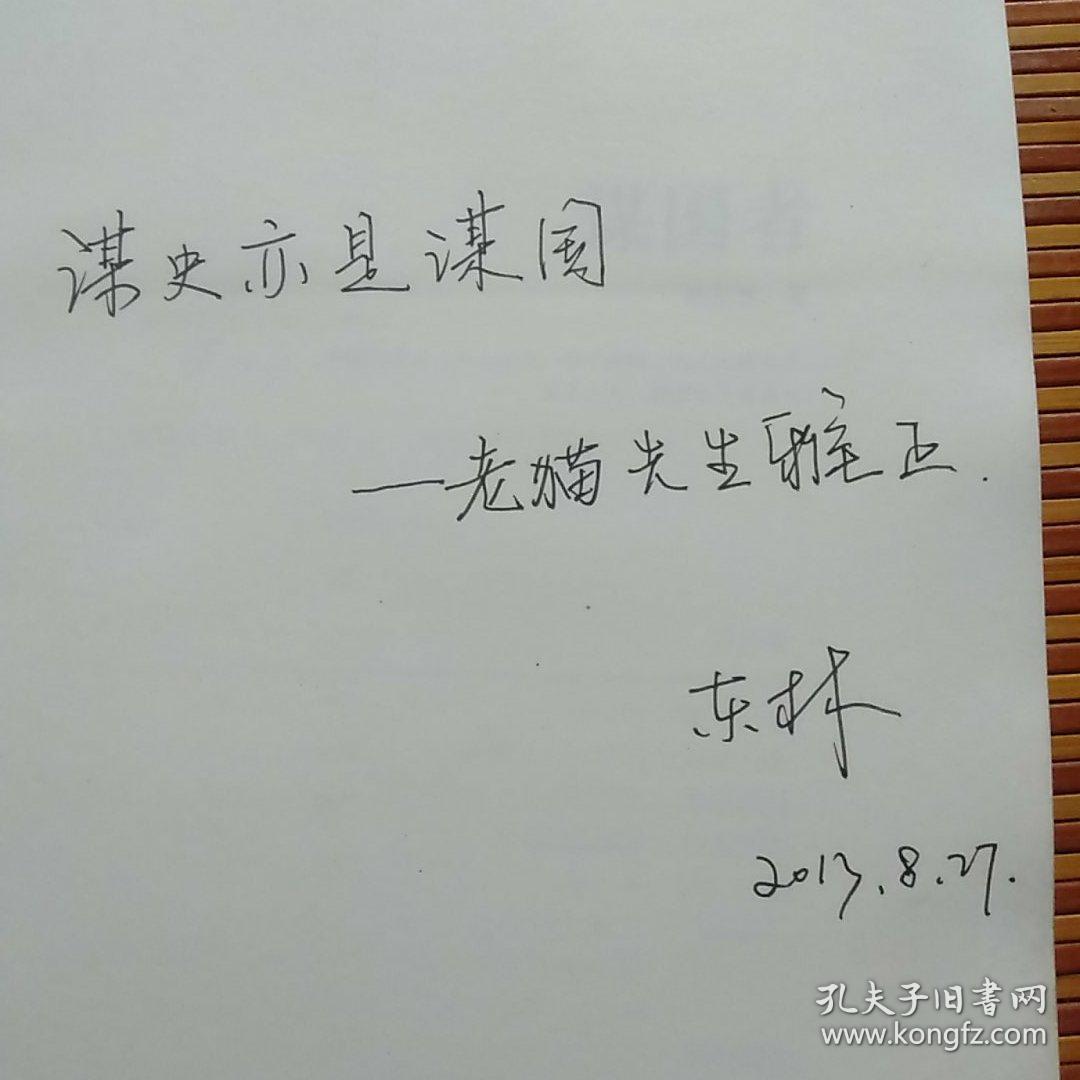 谋史亦是谋国
——老猫先生雅正.
东林
2013.8.27.
孔夫子旧書网
www.kongfz.com